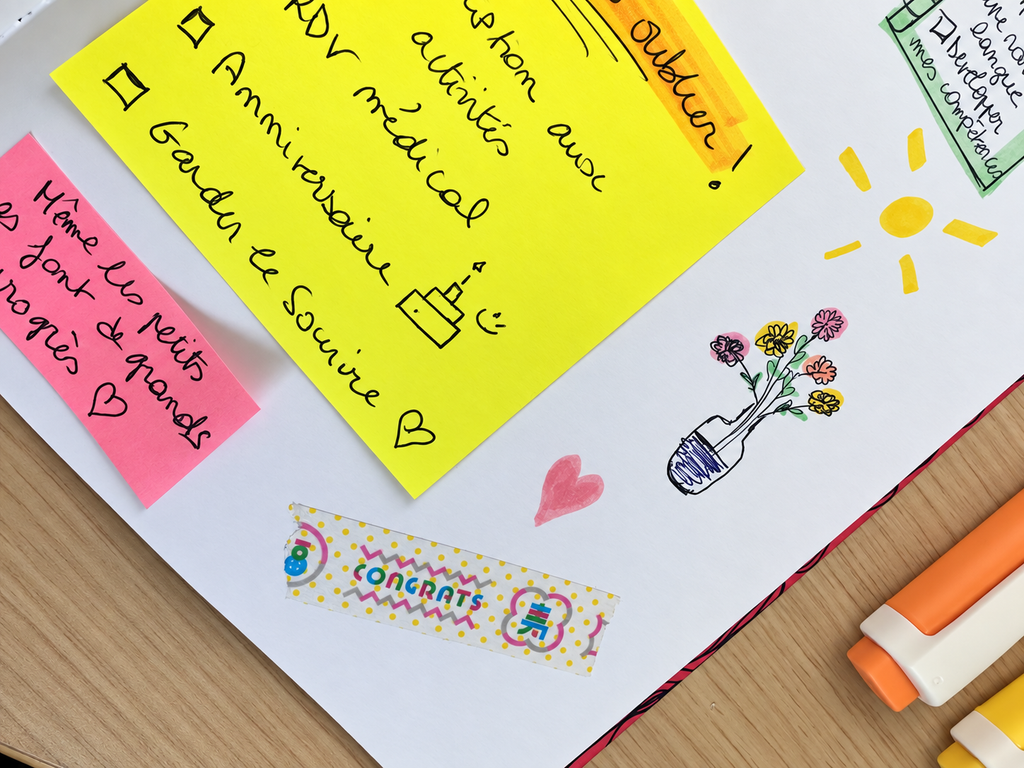 oublier !
ption aux
activités
RDV médical
Anniversaire
Garder le sourire
Même les petits
font de grands
rogrès
langue
Développer
mes compétences
CONGRATS
寿